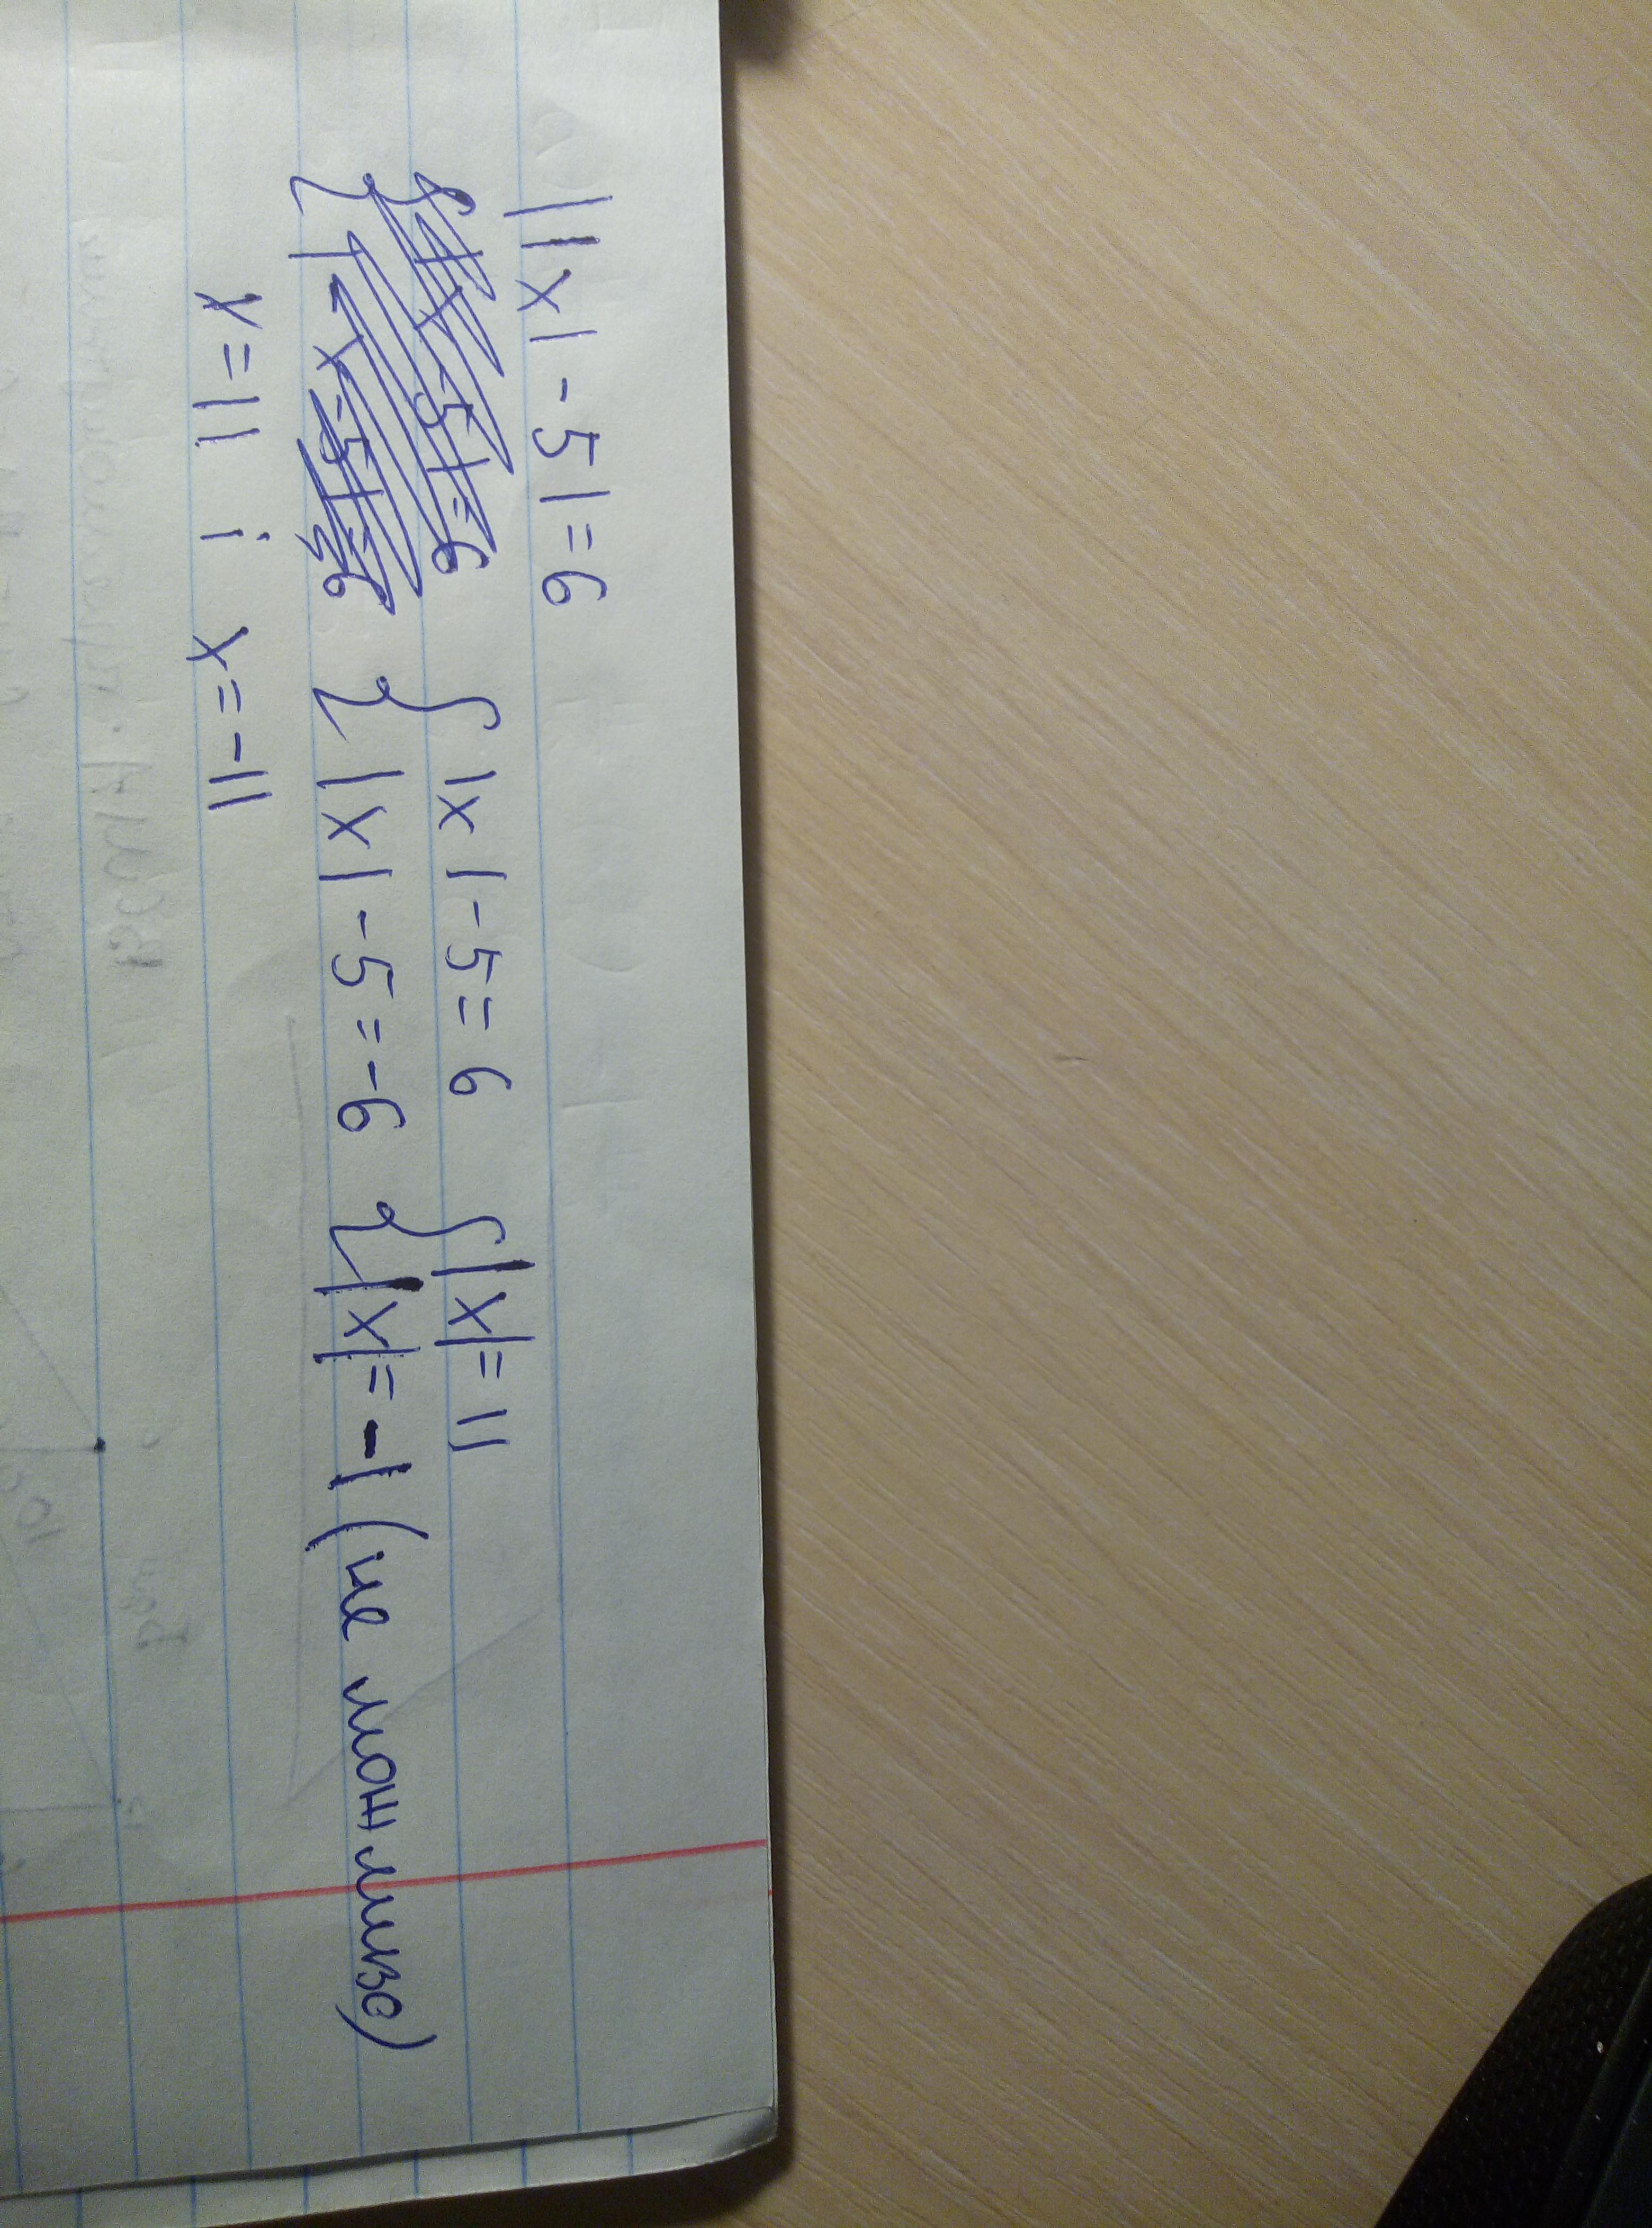 ||x|-5|=6
{|x|-5=6 {|x|=11
{|x|-5=-6 {|x|=-1 (не можливо)
x=11 і x=-11